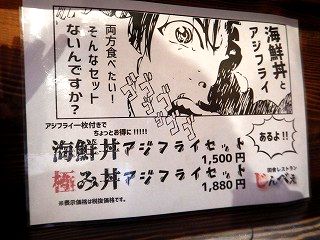 海鮮丼と
アジフライ
両方食べたい!
そんなセット
ないんですか?
ゴゴゴゴゴゴ
アジフライ一枚付きで
ちょっとお得に!!!!!
海鮮丼アジフライセット
1,500円
極み丼アジフライセット
1,880円
あるよ!!
じんべえ
※表示価格は税抜価格です。